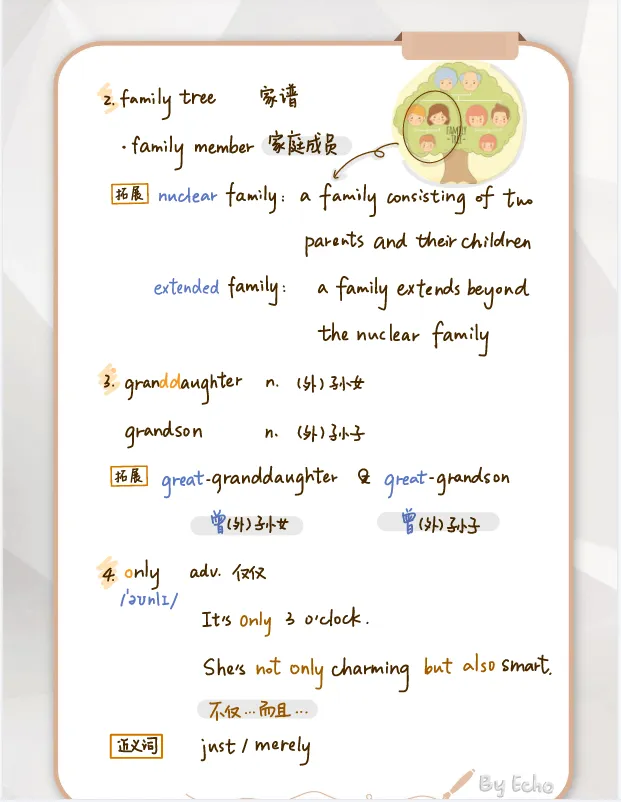 2. family tree 家谱
FAMILY
TREE
· family member 家庭成员
拓展 nuclear family: a family consisting of two
parents and their children
extended family: a family extends beyond
the nuclear family
3. granddaughter n. (外)孙女
grandson n. (外)孙子
拓展 great-granddaughter & great-grandson
曾(外)孙女 曾(外)孙子
4. only adv. 仅仅
/'əʊnlɪ/
It's only 3 o'clock.
She's not only charming but also smart.
不仅…而且…
近义词 just / merely
By Echo